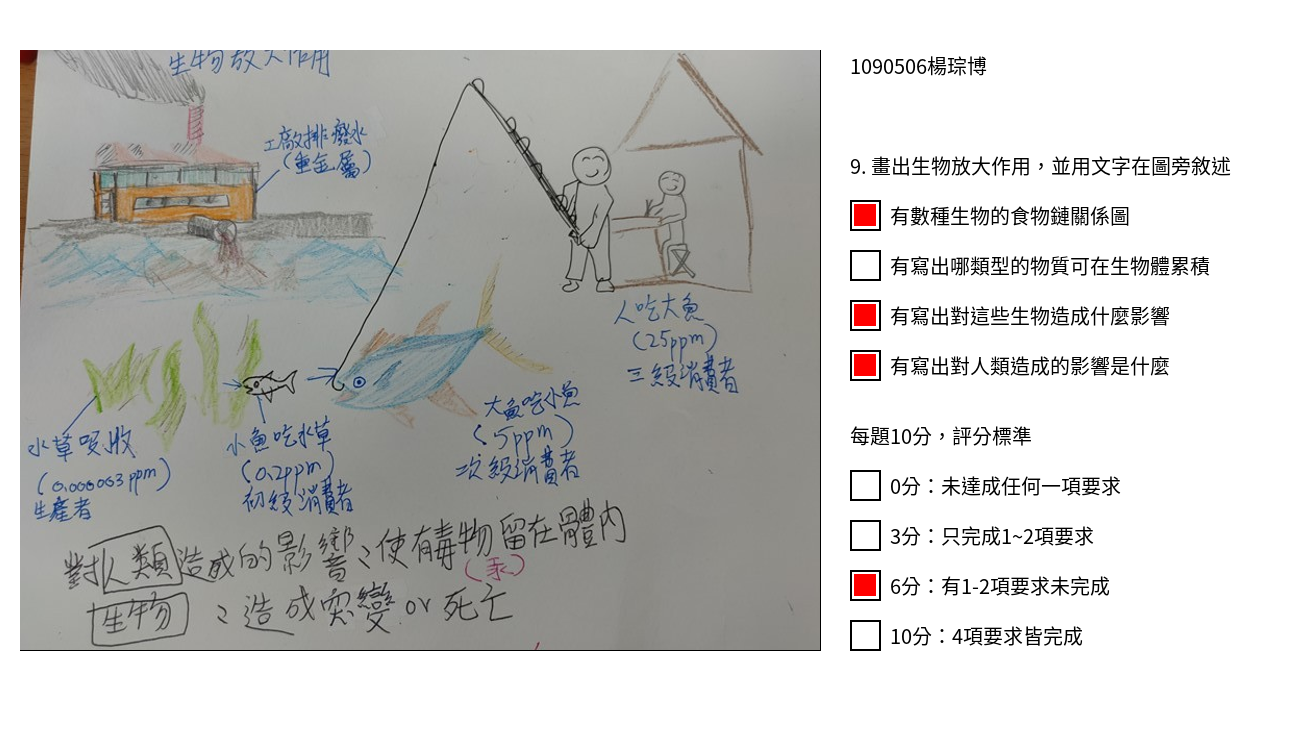 生物放大作用
工廠排廢水
(重金屬)
人吃大魚
(25ppm)
三級消費者
大魚吃小魚
(5ppm)
次級消費者
小魚吃水草
(0.2ppm)
初級消費者
水草吸收
(0.000003ppm)
生產者
對人類造成的影響:使有毒物留在體內
(汞)
生物:造成突變or死亡
1090506楊琮博
9. 畫出生物放大作用，並用文字在圖旁敘述
有數種生物的食物鏈關係圖
有寫出哪類型的物質可在生物體累積
有寫出對這些生物造成什麼影響
有寫出對人類造成的影響是什麼
每題10分，評分標準
0分：未達成任何一項要求
3分：只完成1~2項要求
6分：有1-2項要求未完成
10分：4項要求皆完成